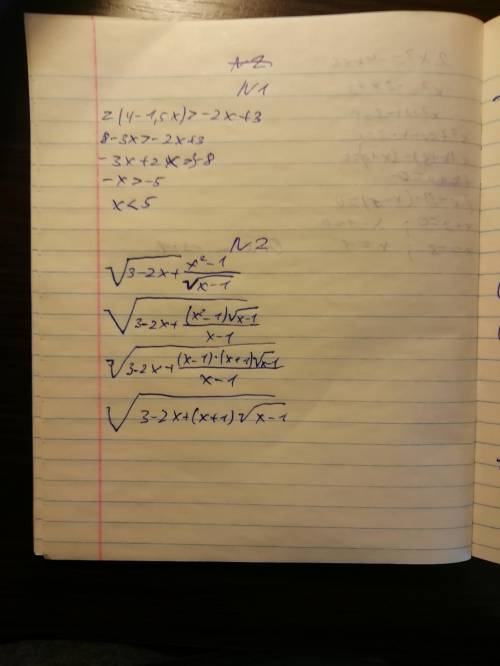 N1
2(4-1,5x)>-2x+3
8-3x>-2x+3
-3x+2x>3-8
-x>-5
x<5
N2
√(3-2x)+(x²-1)/√(x-1)
√(3-2x+((x²-1)√(x-1))/(x-1))
√(3-2x+((x-1)·(x+1)√(x-1))/(x-1))
√(3-2x+(x+1)√(x-1))